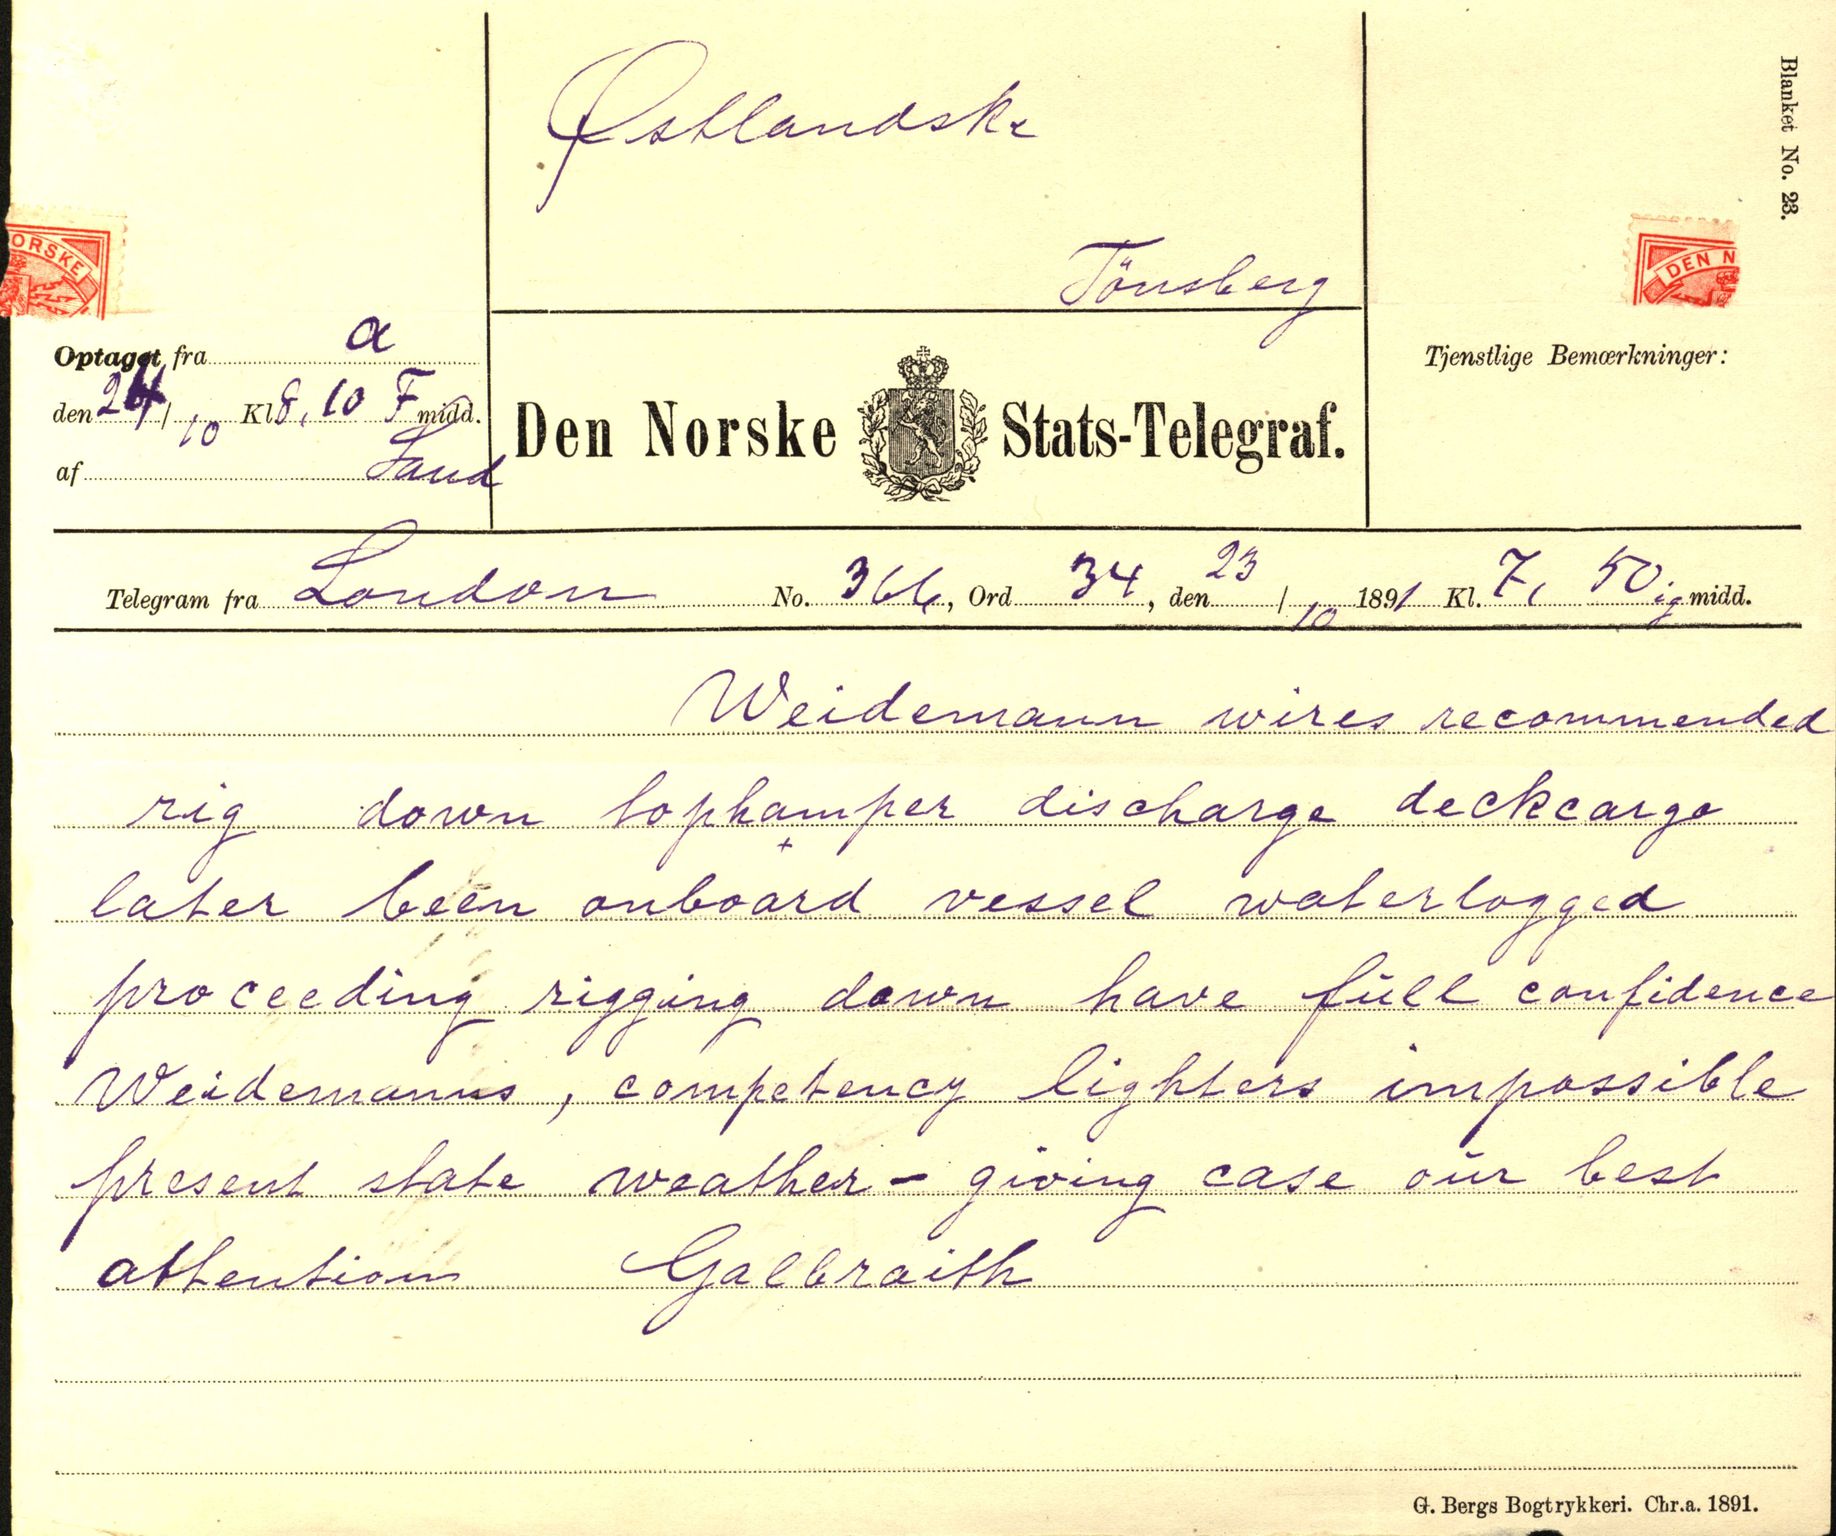 Østlandske
Tönsberg
Blanket No. 23.
ORSKE
DEN N
Optaget fra a
den 24/10 Kl 8,10 F midd.
af Sand
Den Norske Stats-Telegraf.
Tjenstlige Bemærkninger:
Telegram fra London No. 366, Ord 34, den 23/10 1891 Kl. 7, 50 ig midd.
Weidemann wires recommended
rig down tophamper discharge deckcargo
later been onboard vessel waterlogged
proceeding rigging down have full confidence
Weidemanns, competency lighters impossible
present state weather – giving case our best
attention Galbraith
G. Bergs Bogtrykkeri. Chr.a. 1891.